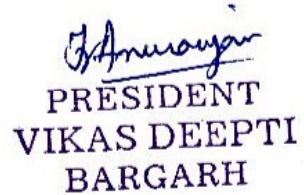 PRESIDENT
VIKAS DEEPTI
BARGARH